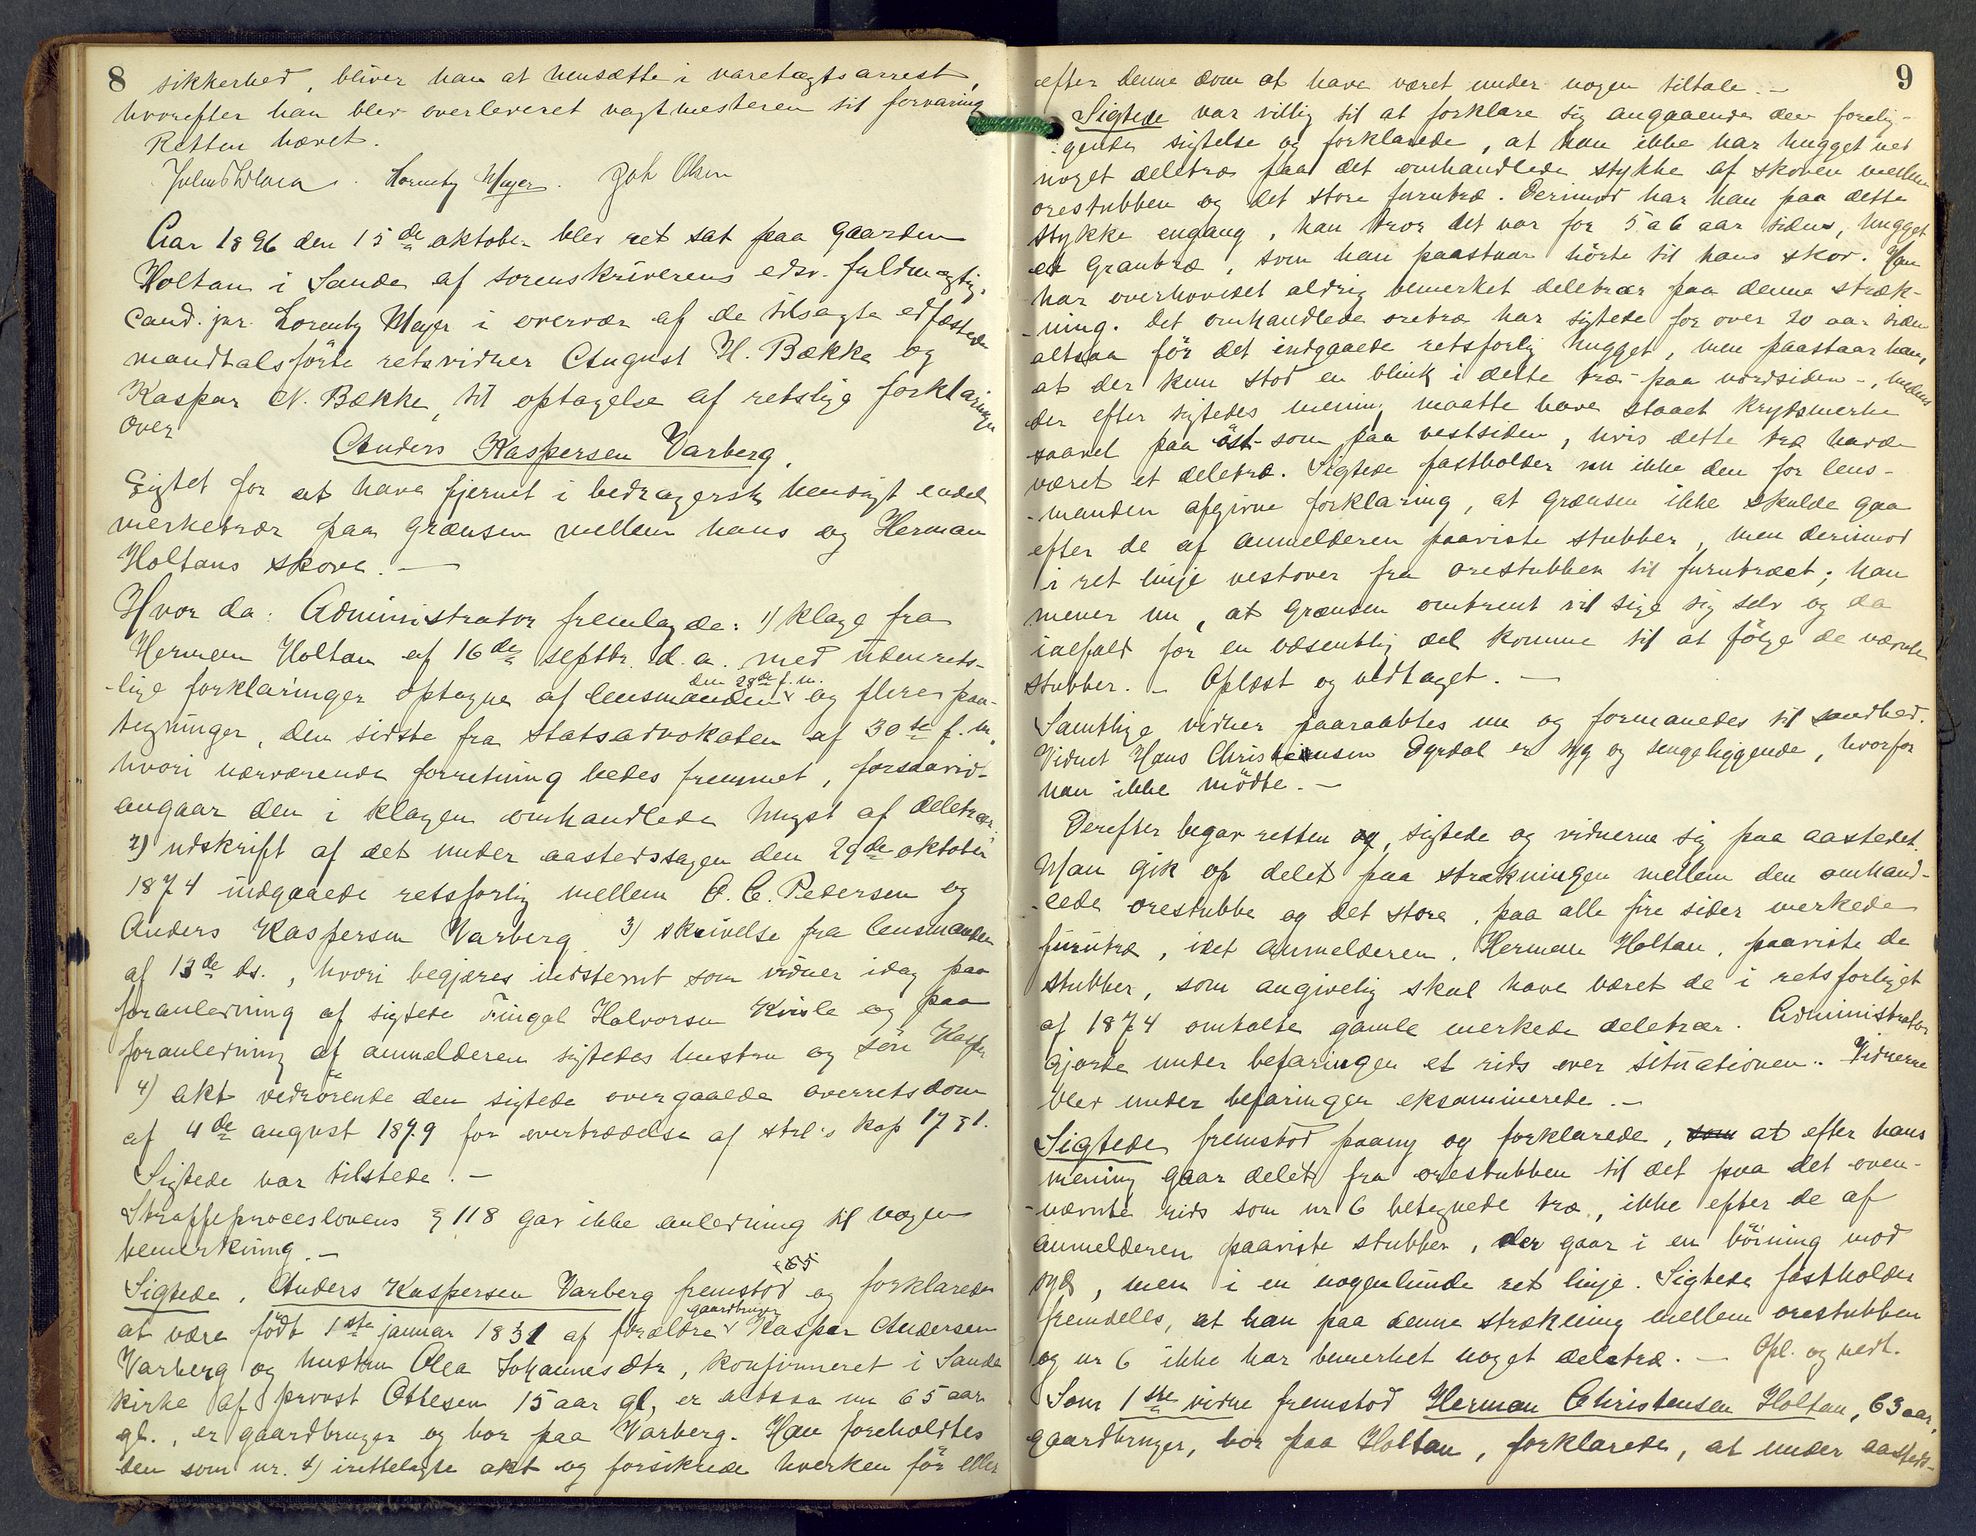 8
sikkerhed, bliver han at hensætte i varetægtsarrest,
hvorefter han blev overleveret vagtmesteren til forvaring
Retten hævet.
Hornby Mayer. Joh Olsen
Aar 1896 den 15de oktober blev ret sat paa gaarden
Holtan i Sande af sorenskriverens edsv. fuldmægtig,
Cand. jur. Hornby Mayer i overvær af de tilsagte edfæstede
mandtalsførte retsvidner August H. Bække og
Kaspar N. Bække, til optagelse af retslige forklaringer
over
Anders Kaspersen Varberg,
Sigtet for at have fjernet i bedragersk hensigt endel
merketrær paa grænsen mellem hans og Herman
Holtans skove. —
Hvor da: Administrator fremlagde: 1) klage fra
Herman Holtan af 16de septbr. d. a. med udenrets-
-lige forklaringer optagne af lensmanden den 28de f. m. og flere paa-
tegninger, den sidste fra Statsadvokaten af 30te f. m,
hvori nærværende forretning bedes fremmet, forsaavidt
angaar den i klagen omhandlede hugst af deletrær.
2) udskrift af det under aastedssagen den 29de oktober
1874 indgaaede retsforlig mellem O. C. Pedersen og
Anders Kaspersen Varberg. 3) skrivelse fra lensmanden
af 13de ds., hvori begjæres indstevnt som vidner idag paa
foranledning af sigtede Fingal Halvorsen Kvisle og paa
foranledning af anmelderen sigtedes hustru og søn Kaspar
4) akt vedrørende den sigtede overgaaede overretsdom
af 4de august 1879 for overtrædelse af strl's kap 17 § 1.
Sigtede var tilstede. —
Straffeproceslovens § 118 gav ikke anledning til nogen
bemerkning. —
Sigtede, Anders Kaspersen Varberg fremstod og forklarede
at være født 1ste januar 1831 af forældre gaardbruger Kaspar Andersen
Varberg og hustru Olea Johannesdtr, konfirmeret i Sande
kirke af provst Ottesen 15 aar gl, er altsaa nu 65 aar
gl., er gaardbruger og bor paa Varberg. Han foreholdtes
den som nr. 4) irettelagte akt og forsikrede hverken før eller
9
efter denne dom at have været under nogen tiltale. —
Sigtede var villig til at forklare sig angaaende den forelig-
-gende sigtelse og forklarede, at han ikke har hugget ned
noget deletræ paa det omhandlede stykke af skoven mellem
orestubben og det store furutræ. Derimod har han paa dette
stykke engang, han tror det var for 5 a 6 aar siden, hugget
et grantræ, som han paastaar hørte til hans skov. Han
har overhovedet aldrig bemerket deletrær paa denne stræk-
-ning. Det omhandlede oretræ har sigtede for over 20 aar siden
altsaa før det indgaaede retsforlig hugget, men paastaar han,
at der kun stod en blink i dette træ – paa nordsiden –, medens
der efter sigtedes mening maatte have staaet krydsmerke
saavel paa øst- som paa vestsiden, hvis dette træ havde
været et deletræ. Sigtede fastholder nu ikke den for lens-
-manden afgivne forklaring, at grænsen ikke skulde gaa
efter de af anmelderen paaviste stubber, men derimod
i ret linje vestover fra orestubben til furutræet; han
mener nu, at grænsen omtrent vil sige sig selv og da
ialfald for en væsentlig del komme til at følge de nævnte
stubber. – Oplæst og vedtaget. —
Samtlige vidner paaraabtes nu og formanedes til sandhed.
Vidnet Hans Christensen Dyrdal er syg og sengeliggende, hvorfor
han ikke mødte. —
Derefter begav retten og, sigtede og vidnerne sig paa aastedet.
Man gik op delet paa strækningen mellem den omhand-
-lede orestubbe og det store, paa alle fire sider merkede
furutræ, idet anmelderen, Herman Holtan, paaviste de
stubber, som angivelig skal have været de i retsforliget
af 1874 omtalte gamle merkede deletrær. Administrator
gjorde under befaringen et rids over situationen. Vidnerne
blev under befaringen eksaminerede. —
Sigtede fremstod paany og forklarede, som at efter hans
mening gaar delet fra orestubben til det paa det oven-
-nævnte rids som nr 6 betegnede træ, ikke efter de af
anmelderen paaviste stubber, der gaar i en bøining mod
syd, men i en nogenlunde ret linje. Sigtede fastholder
fremdeles, at han paa denne strækning mellem orestubben
og nr 6 ikke har bemerket noget deletræ. — Opl. og vedt.
Som 1ste vidne fremstod Herman Christensen Holtan, 63 aar,
gaardbruger, bor paa Holtan, forklarede, at under aasteds-